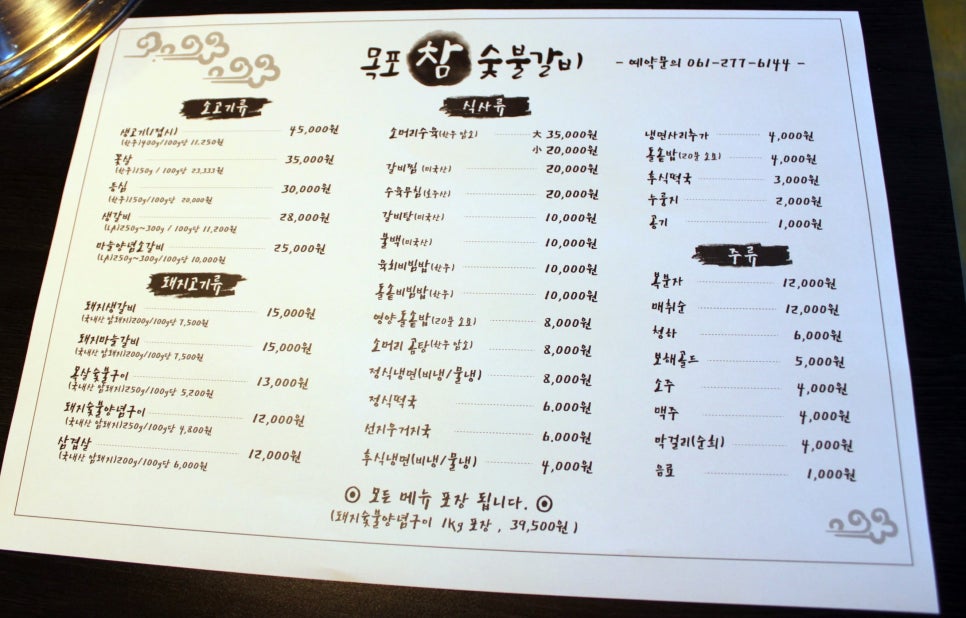 목포 참 숯불갈비
- 예약문의 061-277-6144 -
소고기류
생고기(1접시) 45,000원
(한우)400g/100g당 11,250원
꽃살 35,000원
(한우)150g / 100g당 23,333원
등심 30,000원
(한우)150g/100g당 20,000원
생갈비 28,000원
(LA)250g~300g / 100g당 11,200원
마늘양념소갈비 25,000원
(LA)250g~300g/100g당 10,000원
돼지고기류
돼지생갈비 15,000원
(국내산 암돼지)200g/100g당 7,500원
돼지마늘갈비 15,000원
(국내산 암돼지)200g/100g당 7,500원
목살숯불구이 13,000원
(국내산 암돼지)250g/100g당 5,200원
돼지숯불양념구이 12,000원
(국내산 암돼지)250g/100g당 4,800원
삼겹살 12,000원
(국내산 암돼지)200g/100g당 6,000원
식사류
소머리수육(한우 암소) 大 35,000원
小 20,000원
갈비찜(미국산) 20,000원
수육무침(호주산) 20,000원
갈비탕(미국산) 10,000원
불백(미국산) 10,000원
육회비빔밥(한우) 10,000원
돌솥비빔밥(한우) 10,000원
영양돌솥밥(20분 소요) 8,000원
소머리 곰탕(한우 암소) 8,000원
정식냉면(비냉/물냉) 8,000원
정식떡국 6,000원
선지우거지국 6,000원
후식냉면(비냉/물냉) 4,000원
냉면사리추가 4,000원
돌솥밥(20분 소요) 4,000원
후식떡국 3,000원
누룽지 2,000원
공기 1,000원
주류
복분자 12,000원
매취순 12,000원
청하 6,000원
보해골드 5,000원
소주 4,000원
맥주 4,000원
막걸리(순희) 4,000원
음료 1,000원
◉ 모든 메뉴 포장 됩니다. ◉
(돼지숯불양념구이 1Kg 포장 , 39,500원)